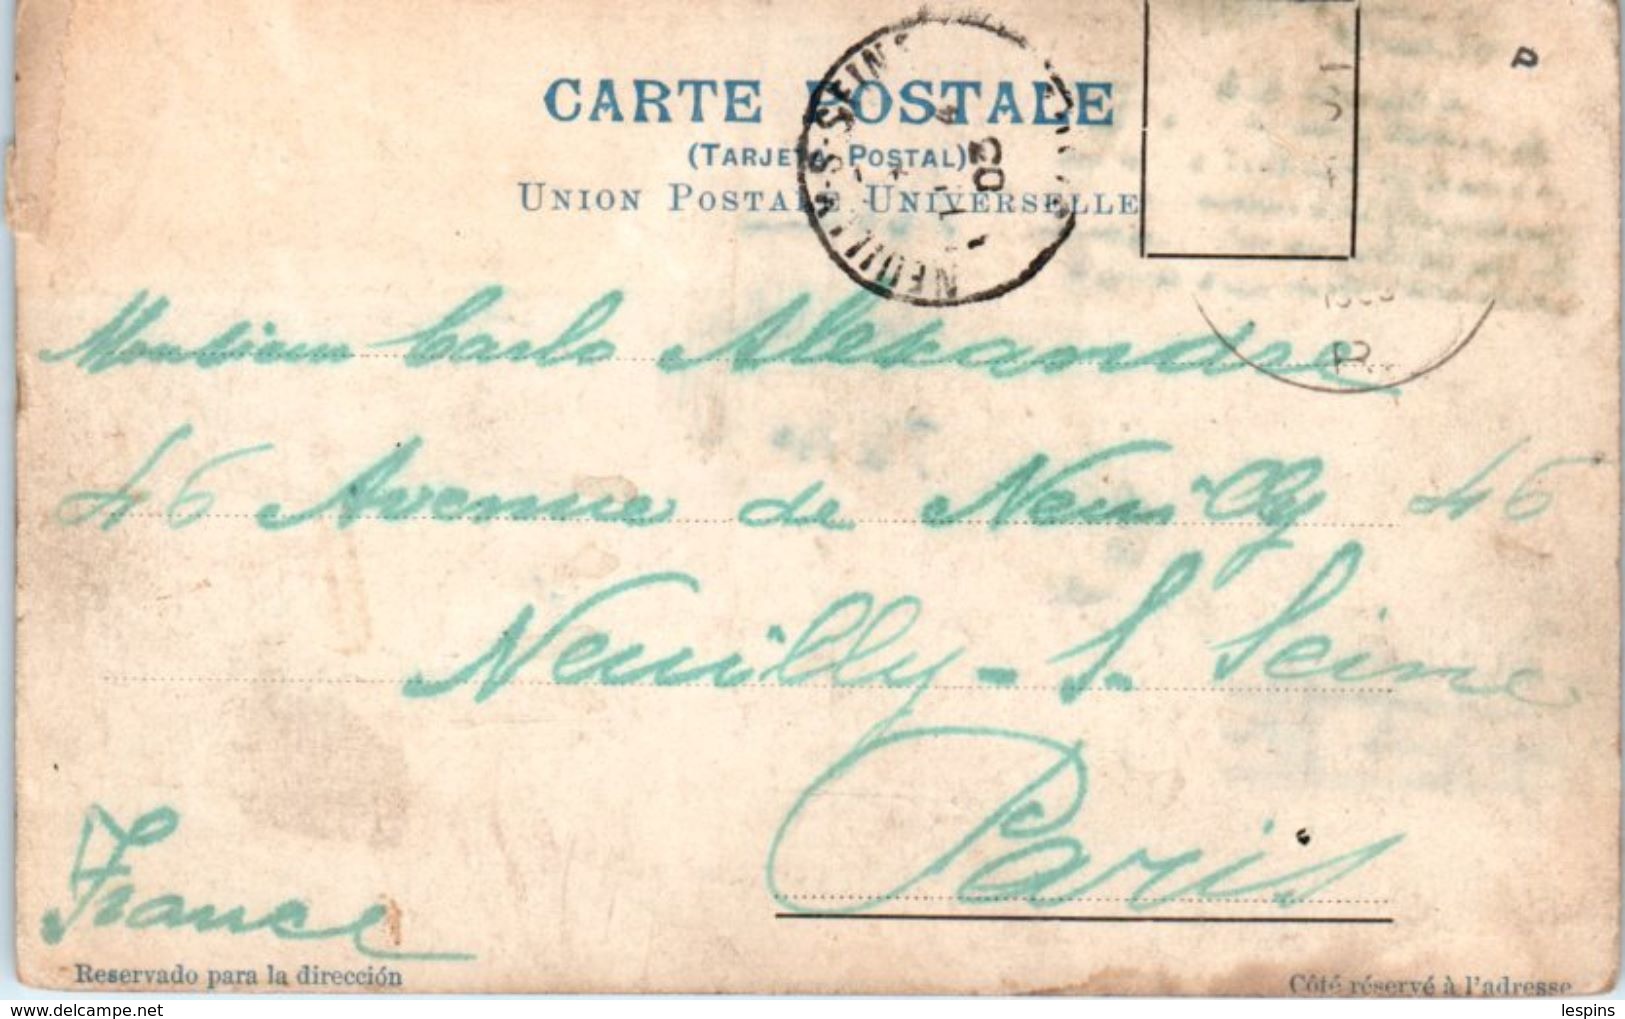 CARTE POSTALE
(TARJETA POSTAL)
UNION POSTALE UNIVERSELLE
NEUILLY-S-SEINE
03
P
Monsieur Carlo Alexandre
46 Avenue de Neuilly 46
Neuilly - S. Seine
Paris
France
Reservado para la dirección
Côté réservé à l'adresse
delcampe.net
lespins